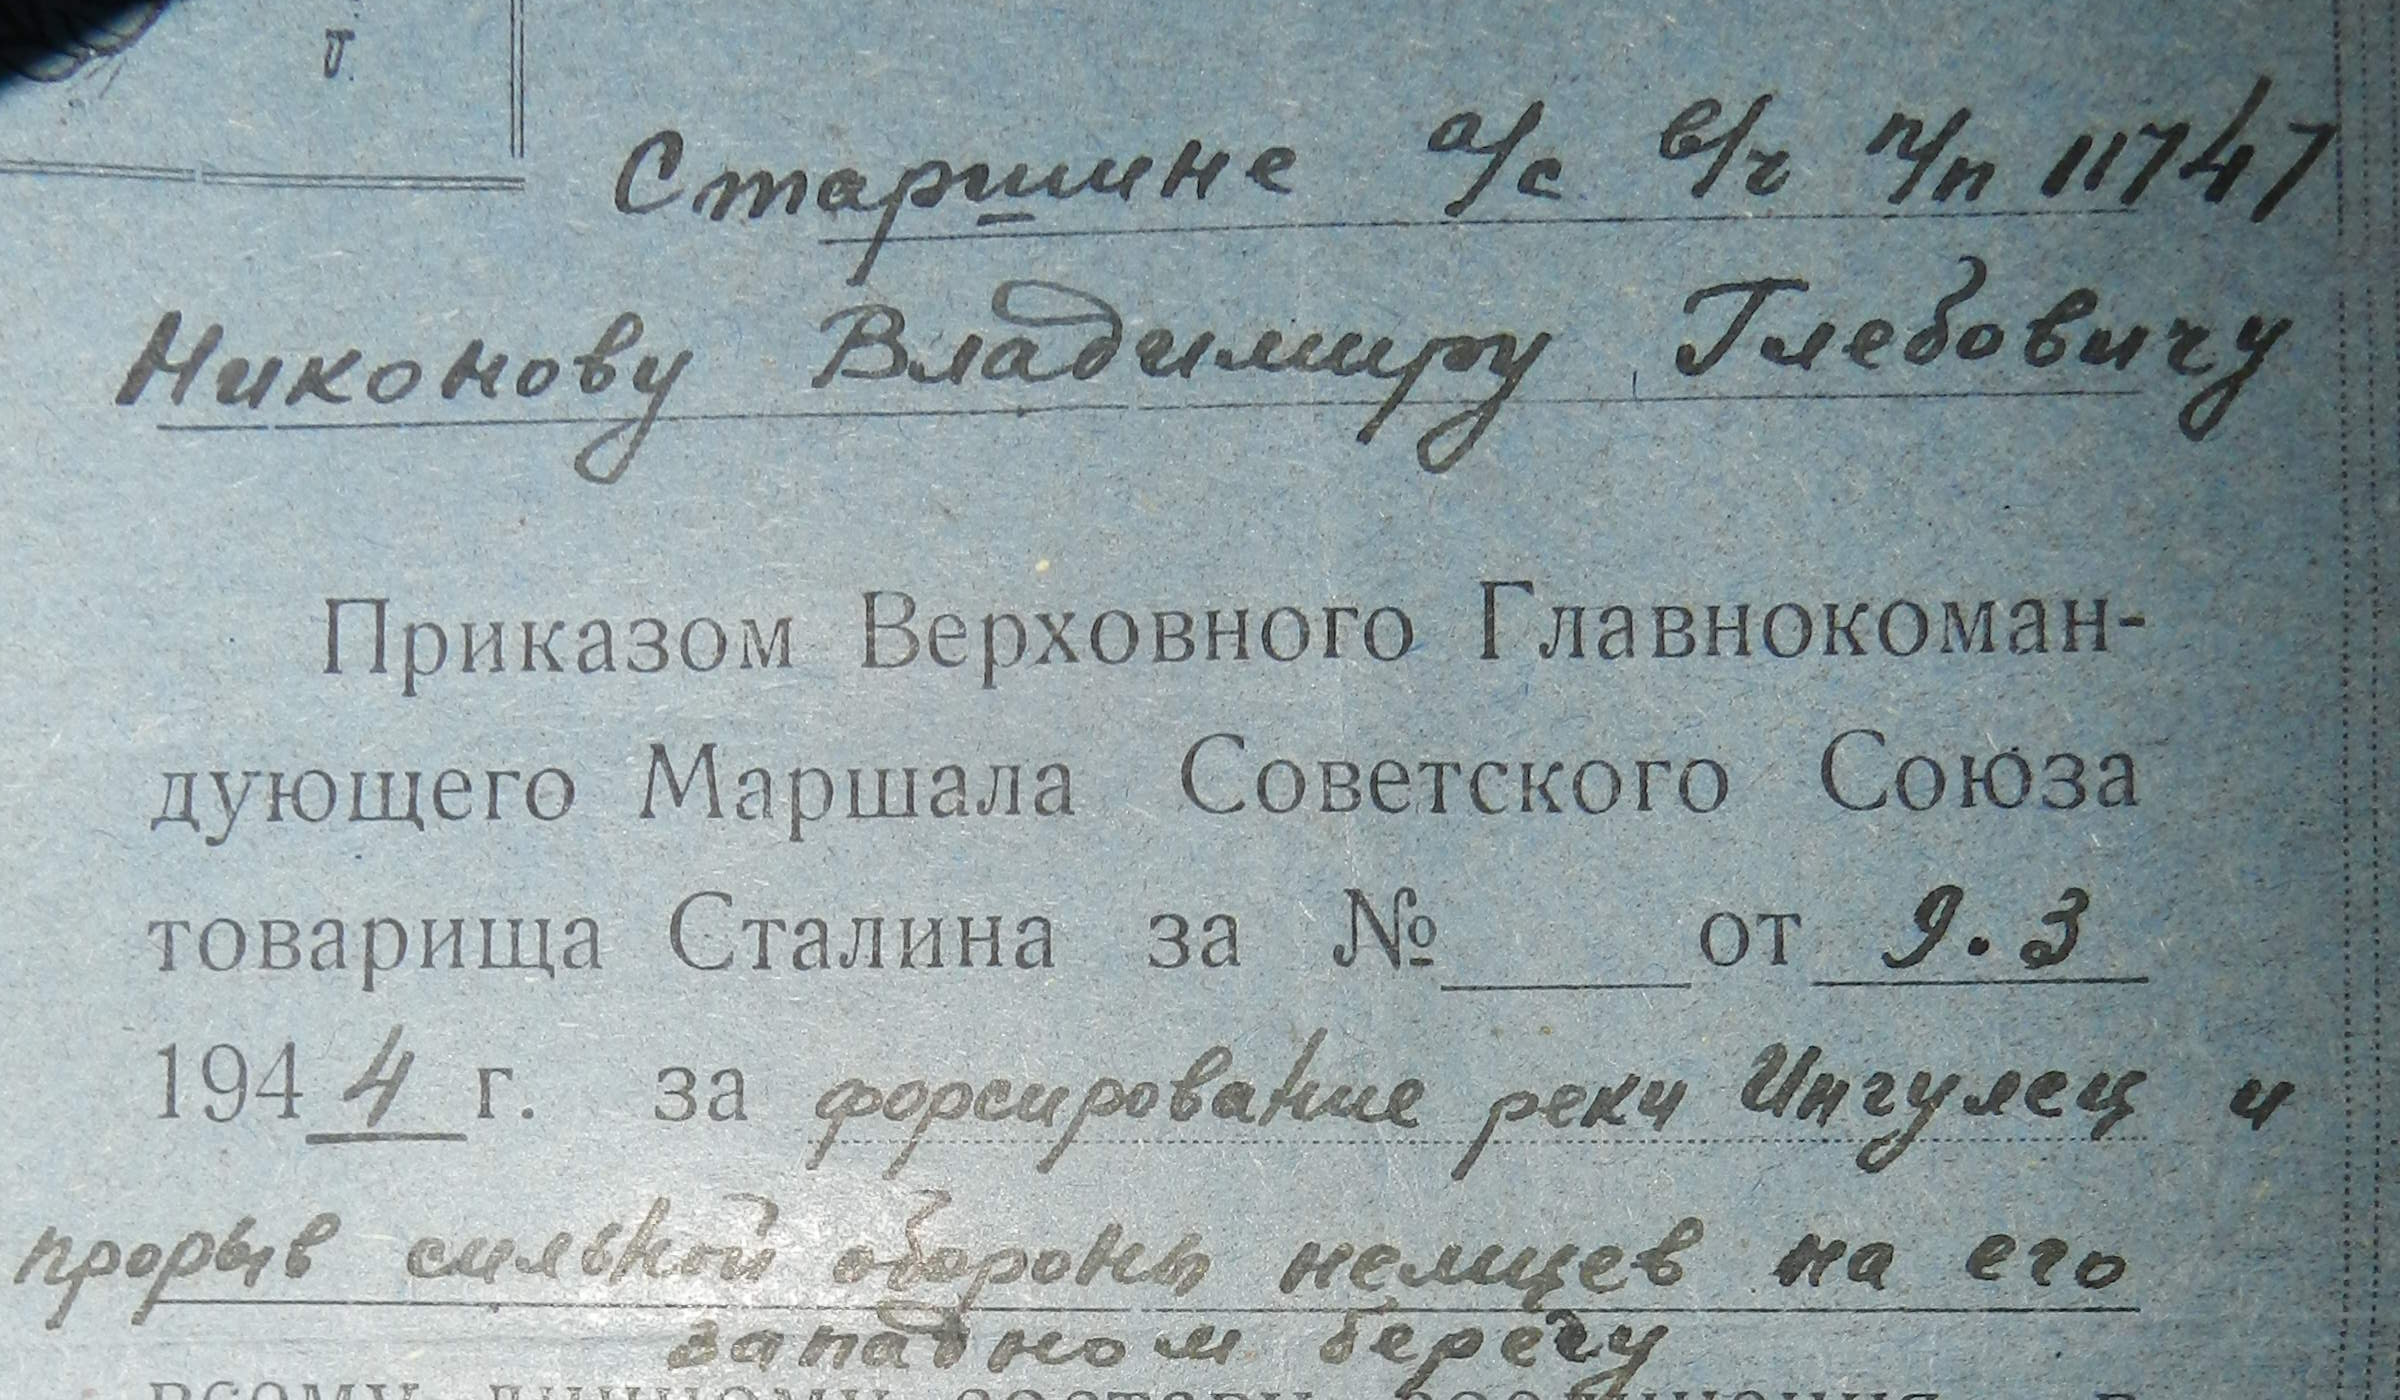 г.
Старшине а/с в/ч п/п 11747
Никонову Владимиру Глебовичу
Приказом Верховного Главнокоман-
дующего Маршала Советского Союза
товарища Сталина за № от 9.3
1944 г. за форсирование реки Ингулец и
прорыв сильной обороны немцев на его
западном берегу
всему личному составу соединения, в